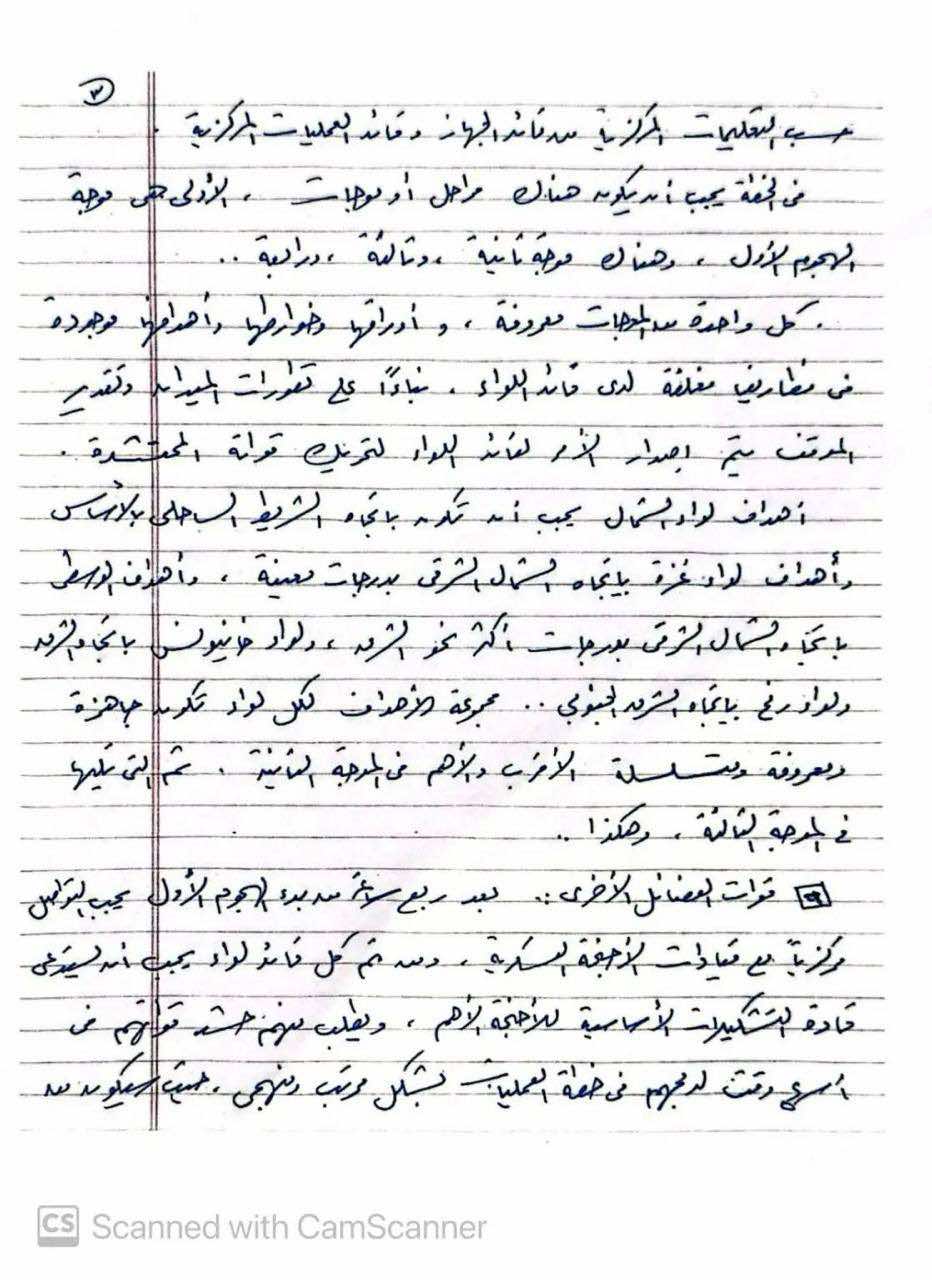 ٣
حسب التعليمات المركزية من قائد الجهاز وقائد العمليات المركزية .
في الخطة يجب أن يكون هناك مراحل أو موجات ، الأولى هي موجة
الهجوم الأول ، وهناك موجة ثانية ، وثالثة ، ورابعة ..
. كل واحدة من الموجات معروفة ، و أوراقها وخوارطها وأهدافها موجودة
في مظاريف مغلقة لدى قائد اللواء . بناءً على تطورات الميدان وتقدير
الموقف يتم إصدار الأمر لقائد اللواء لتحريك قواته المحتشدة .
أهداف لواء الشمال يجب أن تكون باتجاه الشريط الساحلي بالأساس
وأهداف لواء غزة باتجاه الشمال الشرقي بدرجات معينة ، وأهداف الوسطى
باتجاه الشمال الشرقي بدرجات أكثر نحو الشرق ، ولواء خانيونس باتجاه الشرق
ولواء رفح باتجاه الشرق الجنوبي .. مجموعة الأهداف لكل لواء تكون جاهزة
ومعروفة ومتسلسلة الأقرب والأهم في الموجة الثانية . ثم التي تليها
في الموجة الثالثة ، وهكذا ..
قوات الفصائل الأخرى :. بعد ربع ساعة من بدء الهجوم الأول يجب التواصل
مركزياً مع قيادات الأجنحة العسكرية ، ومن ثم كل قائد لواء يجب أن يستدعي
قادة التشكيلات الأساسية للأجنحة الأهم ، ويطلب منهم حشد قواتهم في
أسرع وقت لدمجهم في خطة العمليات بشكل مرتب ومنهجي ، حيث سيكون من
CS Scanned with CamScanner